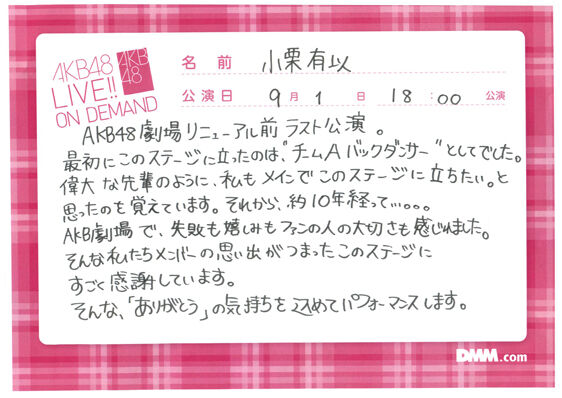 AKB48
LIVE!!
ON DEMAND
AKB
48
名 前 小栗有以
公演日 9月1日 18:00 公演
AKB48劇場リニューアル前ラスト公演。
最初にこのステージに立ったのは、"チームAバックダンサー"としてでした。
偉大な先輩のように、私もメインでこのステージに立ちたい。と
思ったのを覚えています。それから、約10年経って、、。。。
AKB劇場で、失敗も嬉しみもファンの人の大切さも感じれました。
そんな私たちメンバーの思い出がつまったこのステージに
すごく感謝しています。
そんな、「ありがとう」の気持ちを込めてパフォーマンスします。
DMM.com